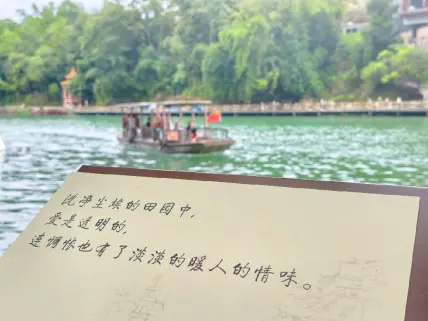 洗净尘埃的田园中，
爱是透明的，
连惆怅也有了淡淡的暖人的情味。